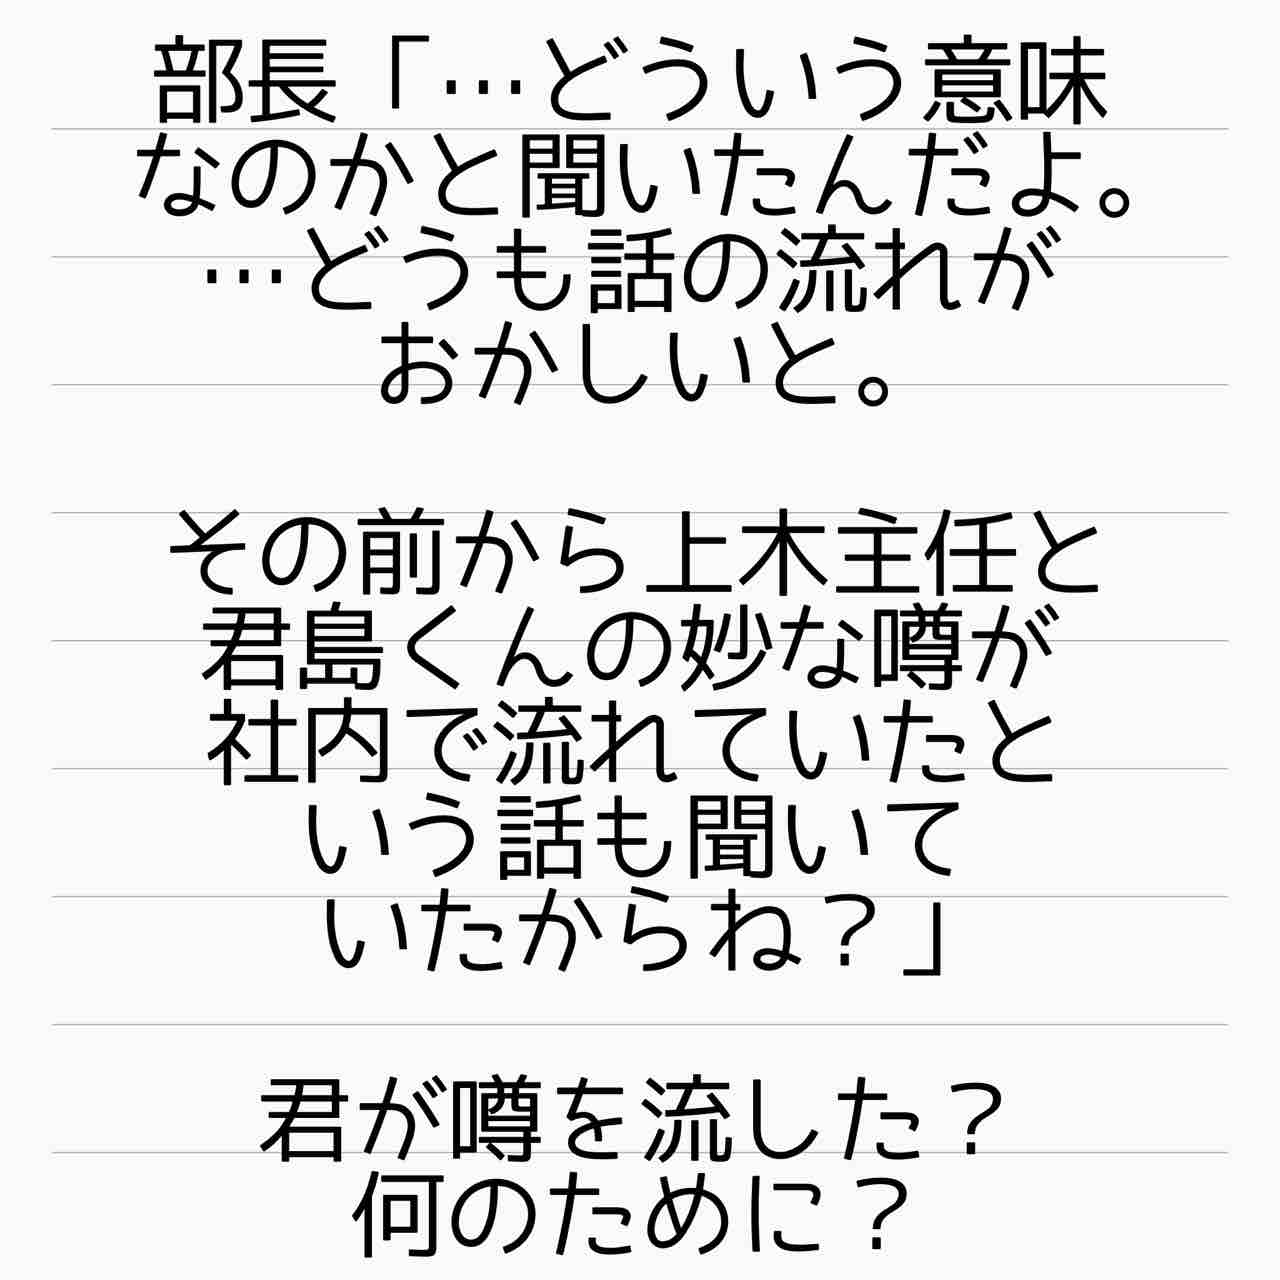 部長「…どういう意味
なのかと聞いたんだよ。
…どうも話の流れが
おかしいと。
その前から上木主任と
君島くんの妙な噂が
社内で流れていたと
いう話も聞いて
いたからね？」
君が噂を流した？
何のために？